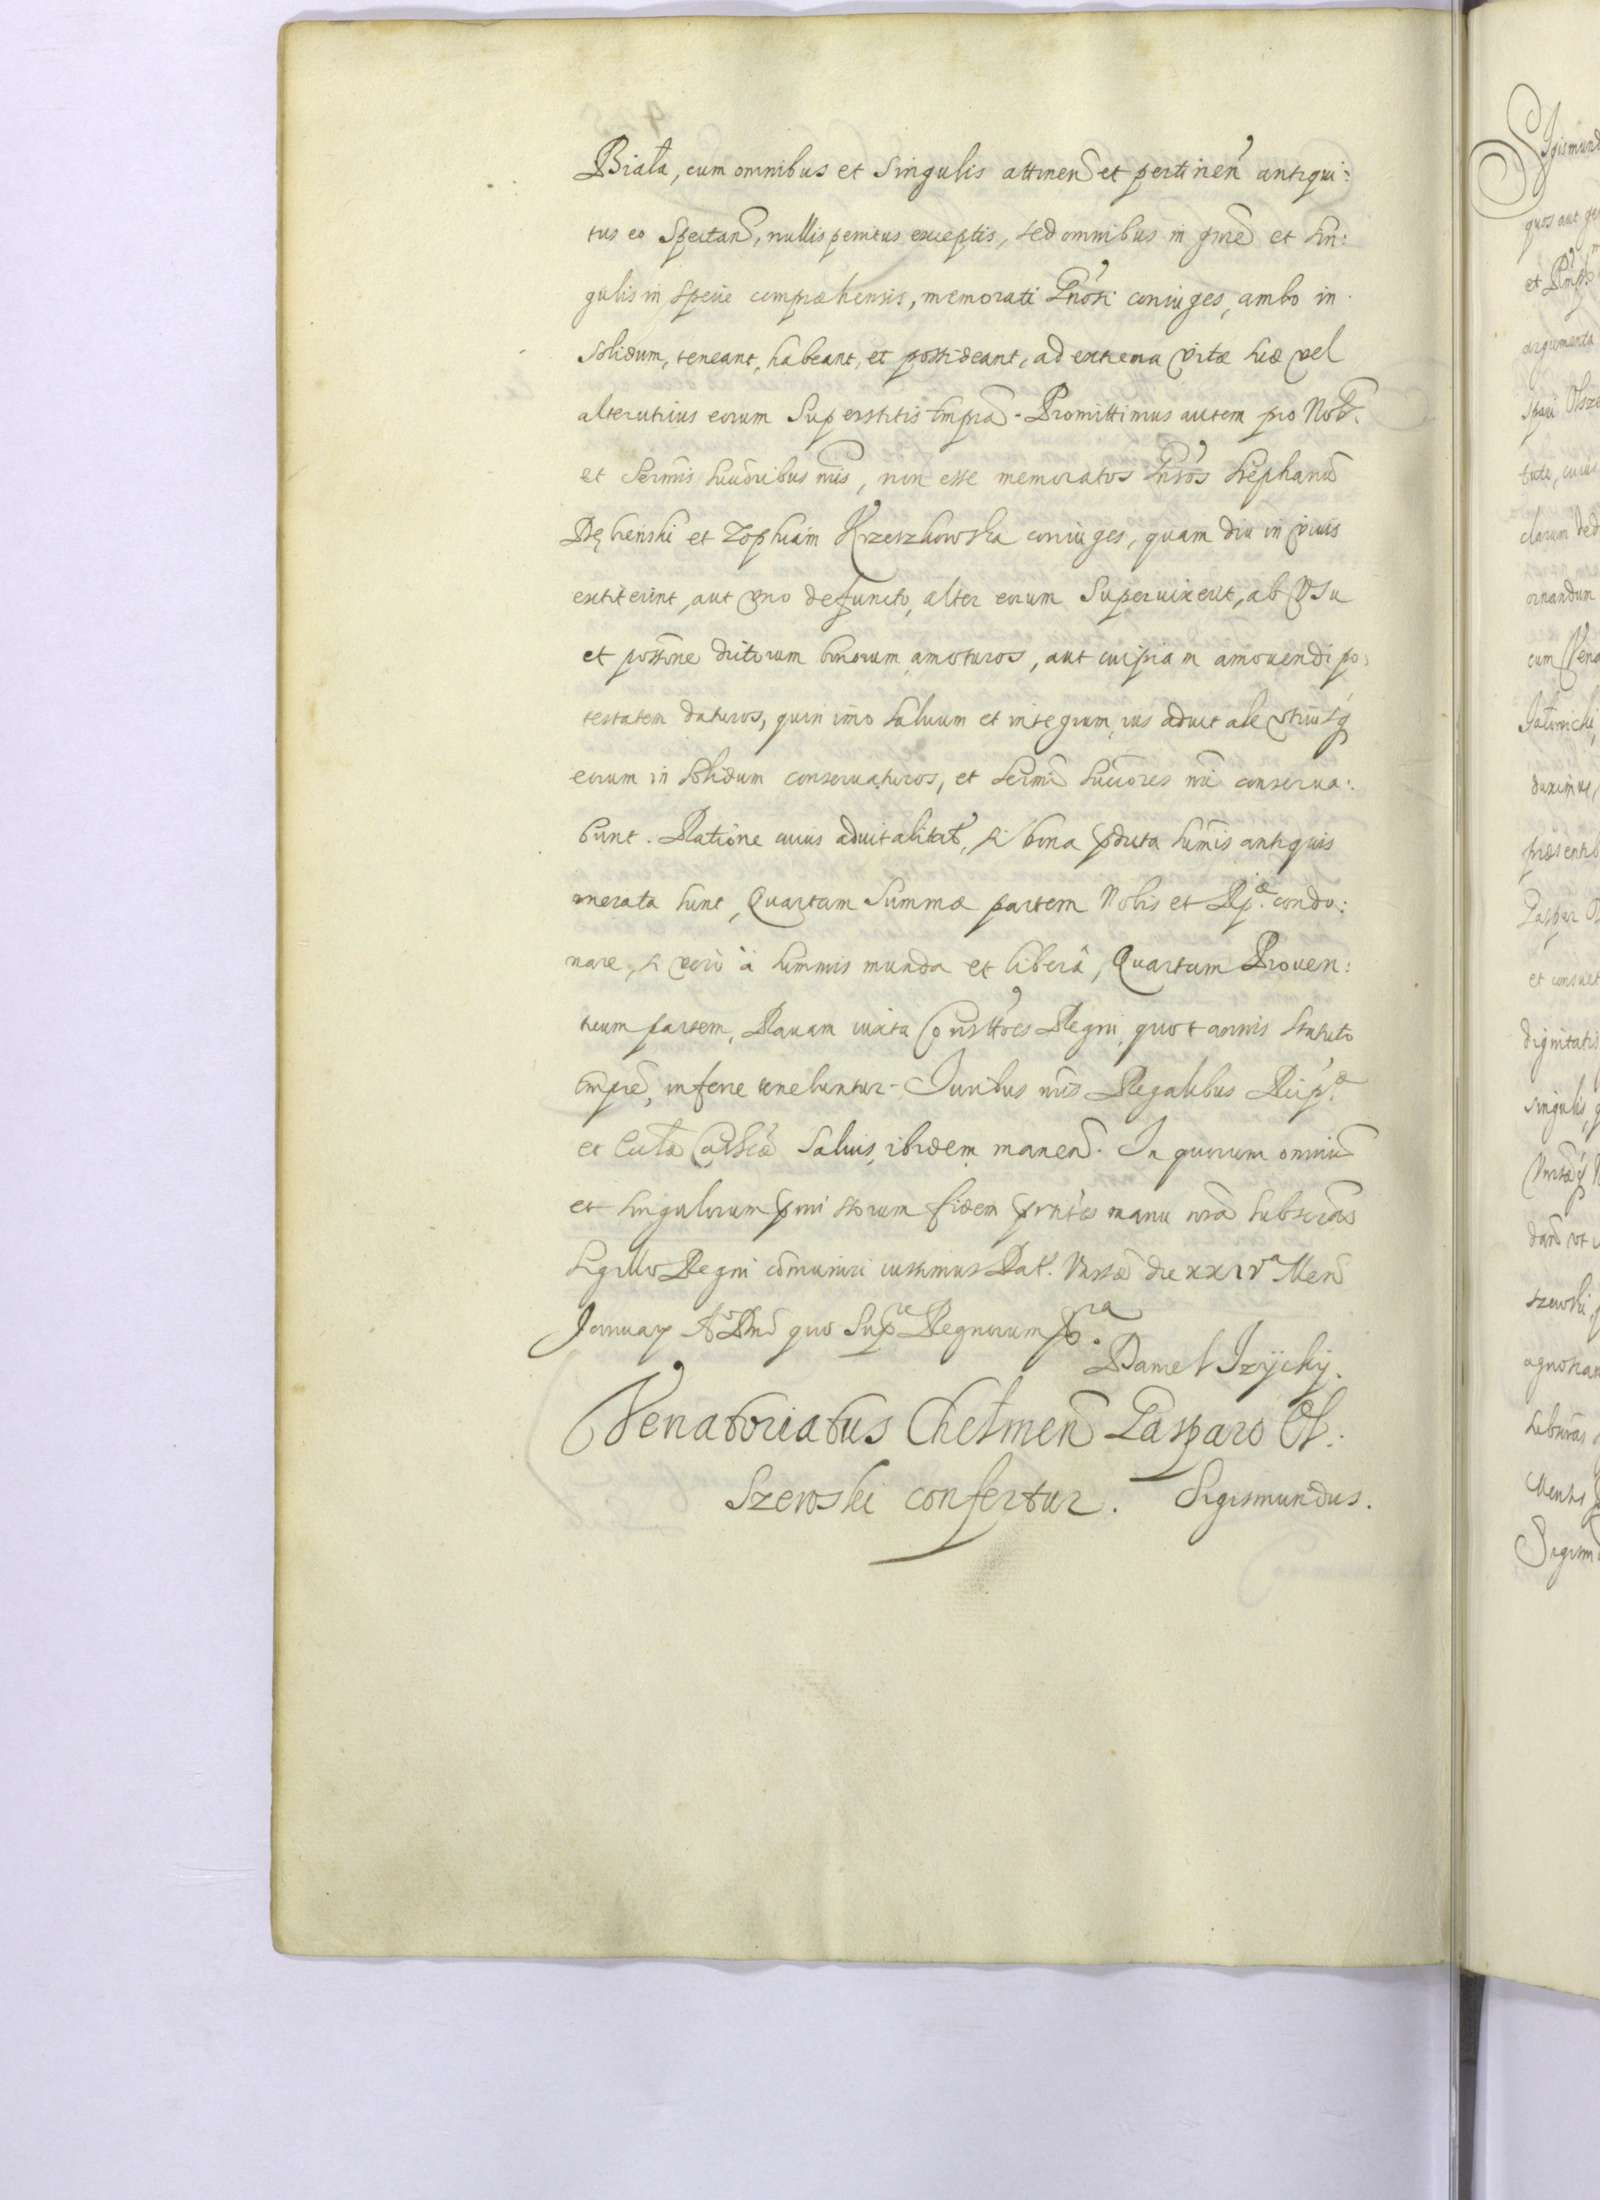 Biała, cum omnibus et singulis attinen et pertinen antiqui:
tus eo spectan, nullis penitus exceptis, sed omnibus in gnre et sin:
gulis in specie compræhensis, memorati Gnosi coniuges, ambo in
solidum, teneant, habeant, et possideant, ad extrema vitæ suæ vel
alterutrius eorum superstitis tempra. Promittimus autem pro Nob.
et Sermis succoribus nris, non esse memoratos Gnsos Stephanu
Dębienski et Zophiam Krzeszkowska coniuges, quam diu in viuis
extiterint, aut vno defuncto, alter eorum superuixerit, ab vsu
et possone dictorum bonorum amoturos, aut cuipiam amouendi po:
testatem daturos, quin imo saluum et integrum ius aduitale vtriusq
eorum in solidum conseruaturos, et sermi succores nri conserua:
bunt. Ratione cuius aduitalitat, si bona pdicta summis antiquis
onerata sunt, Quartam summæ partem Nobis et Rp. condo:
nare, si vero à summis munda et libera, Quartam Prouen:
tuum partem, Rauam iuxta Consttoes Regni, quot annis statuto
tempre, inferre tenebuntur. Iuribus nris Regalibus Reip.
et Eccla Cathca saluis ibidem manen. In quorum omniu
et singulorum pmissorum fidem pntes manu nra subscras
sigillo Regni comuniri iussimus Dat. Varsæ die XXIV Men
January Ao Dni quo supra Regnorum
Daniel Izÿckÿ.
Venatoriatus Chełmen Gasparo Ol:
szewski confertur. Sigismundus.
Sigismund
quos aut ge
et
argumenta
spari Olsze
tute, cuius
clarum ded
ornandum
cum Vena
duximus
præsentib
Gaspar O
et consuet
dignitatis
singulis, q
szewski
agnoscan
Mensis
Sigism